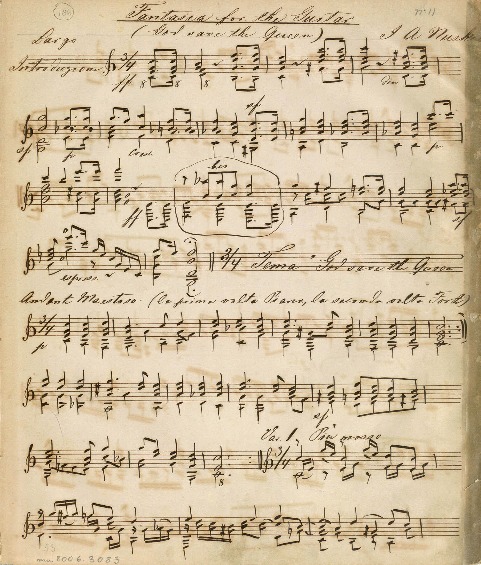 186
No 11
Fantasia for the Guitar
(God save the Queen)
J A Nüske
Largo
Introduzione
ff
sf
p
bis
ff
espress.
3/4 Tema "God save the Queen
Andant Maestoso. (la prima volta Piano, la seconda volta Forte)
p
sf
Var. 1, Piu mosso
p
mu 8006.3083